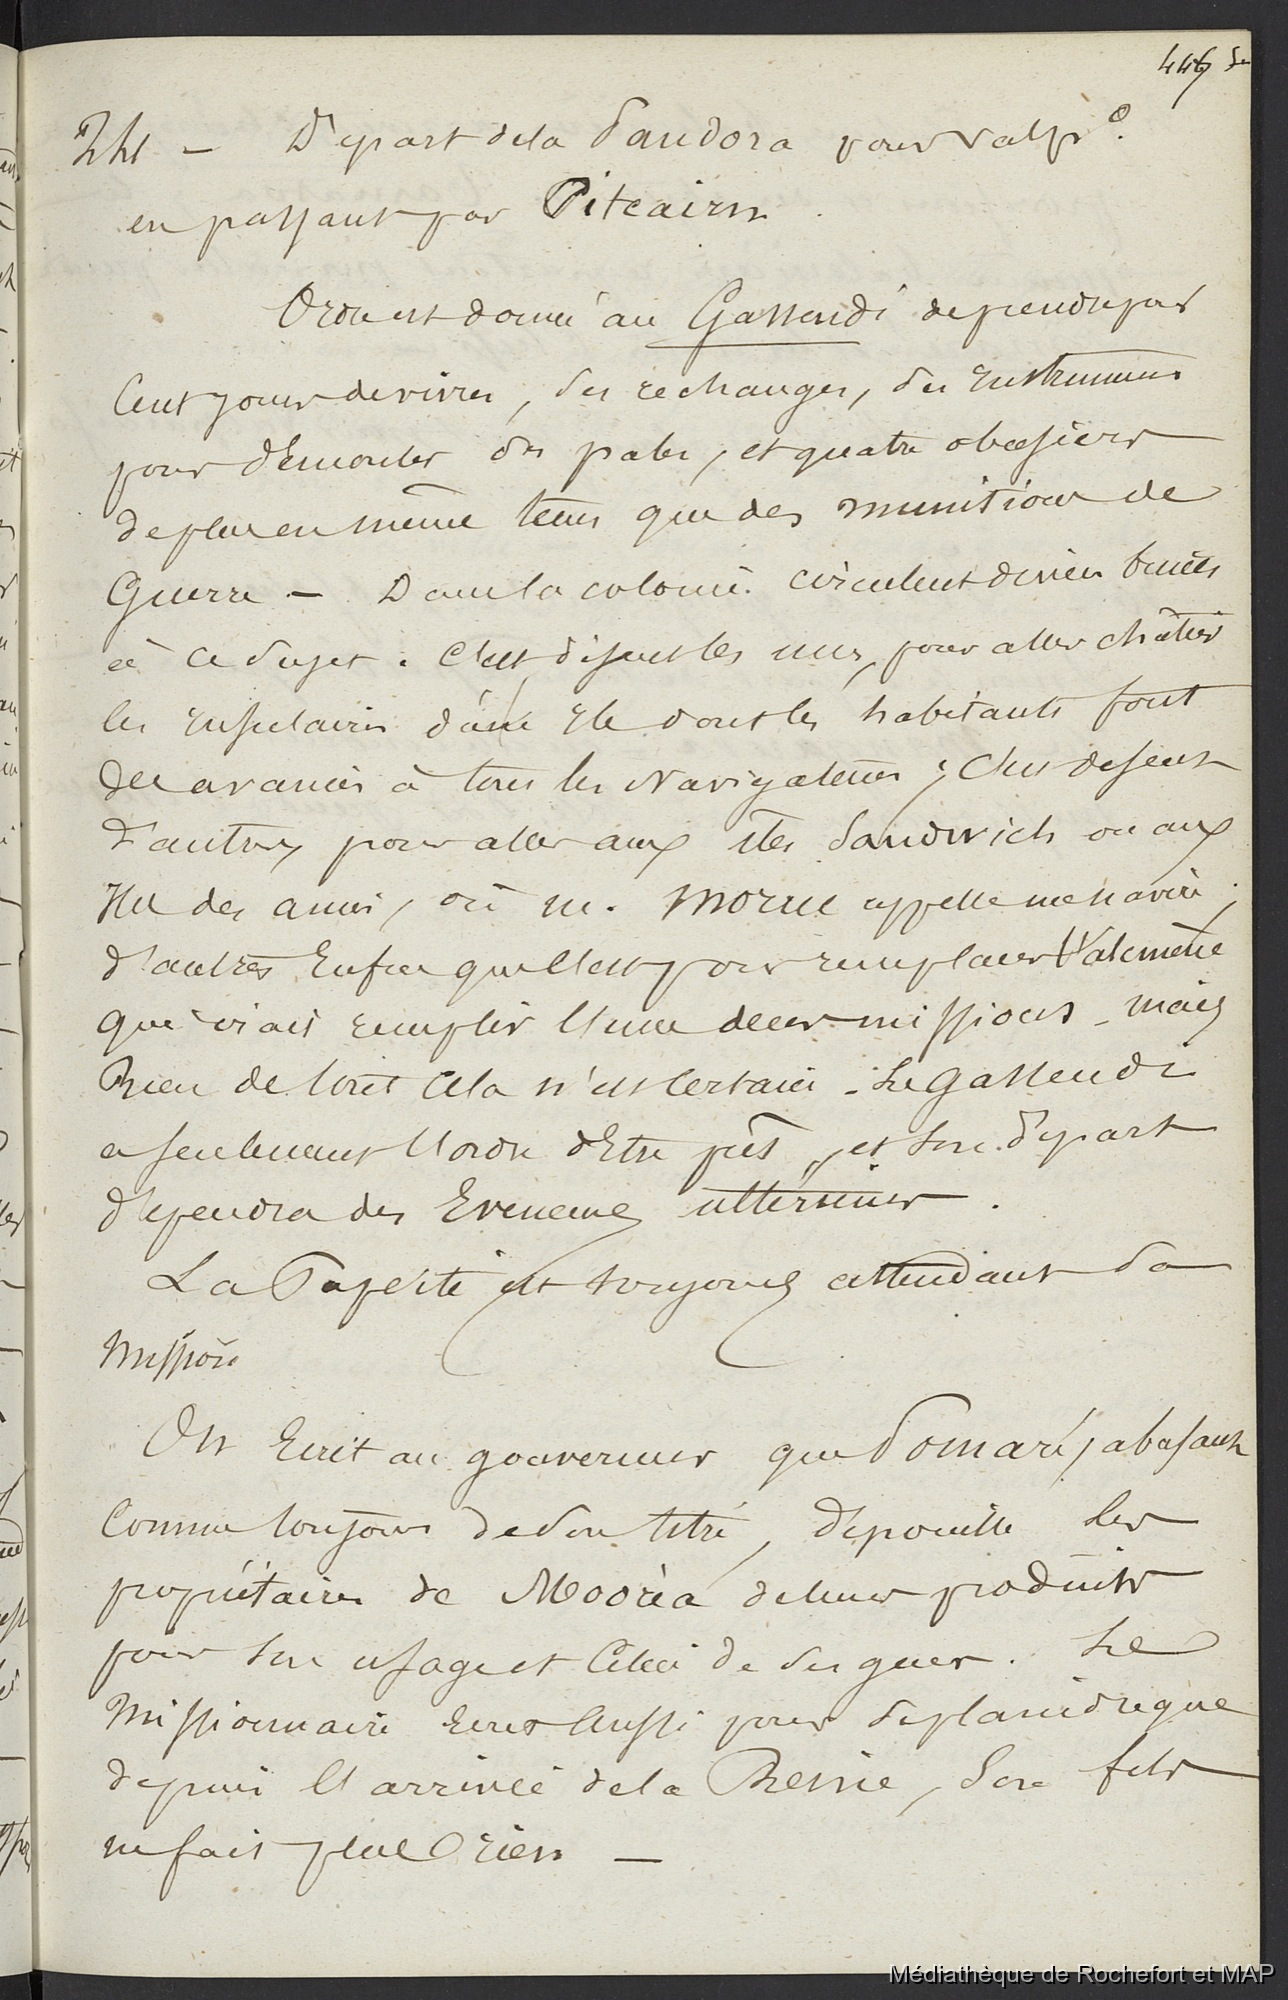 Départ de la Pandora pour Valpo.
en passant par Pitcairn.
Ordre est donné au Gassendi de prendre pour
Cent jours de vivres, des rechanges, des Instruments
pour démonter des pales, et quatre obusiers
de plus en même tems que des munitions de
Guerre — Dans la colonie circulent divers bruits
à ce sujet. C'est disent les uns, pour aller châtier
les insulaires d'une Ile dont les habitants font
des avanies à tous les Navigateurs; C'est disent
d'autres pour aller aux iles Sandwich ou aux
Iles des amis, où m. appelle un navire;
d'autres Enfin que c'est pour remplacer l'alcmène
qui irait remplir l'une de ces missions - mais
Rien de tout Cela n'est Certain - Le Gassendi
a seulement l'ordre d'Etre prêt, et son départ
dépendra des Evenemens ultérieurs.
La est toujours attendant sa
Mission
On Ecrit au gouverneur que Pomaré, abusant
Comme toujours de son titre, dépouille les
propriétaires de Mooréa de leurs produits
pour son usage et Celui de ses gens. Le
Missionnaire Ecrit aussi pour se plaindre que
depuis l'arrivée de la Reine, Son fils
ne fait plus rien —
Médiathèque de Rochefort et MAP